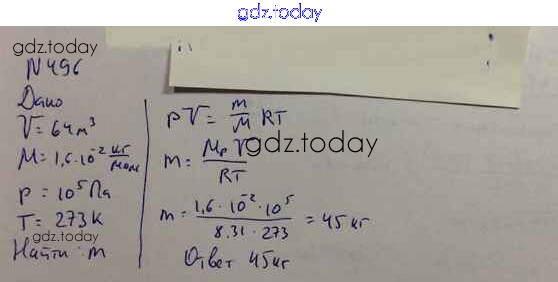 gdz.today
gdz.today
N 496
Дано
V = 64 м³
M = 1,6·10⁻² кг/моль
p = 10⁵ Па
T = 273 К
gdz.today
Найти: m
pV = m/M RT
gdz.today
m = MpV/RT
m = 1,6·10⁻²·10⁵/8.31·273 = 45 кг
Ответ 45 кг